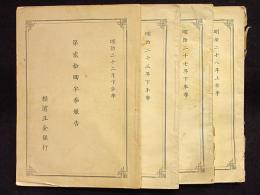 明治二十二年下半季
第貳拾回半季報告
橫濱正金銀行
明治二十三年下半季
明治二十七年下半季
明治二十八年上半季